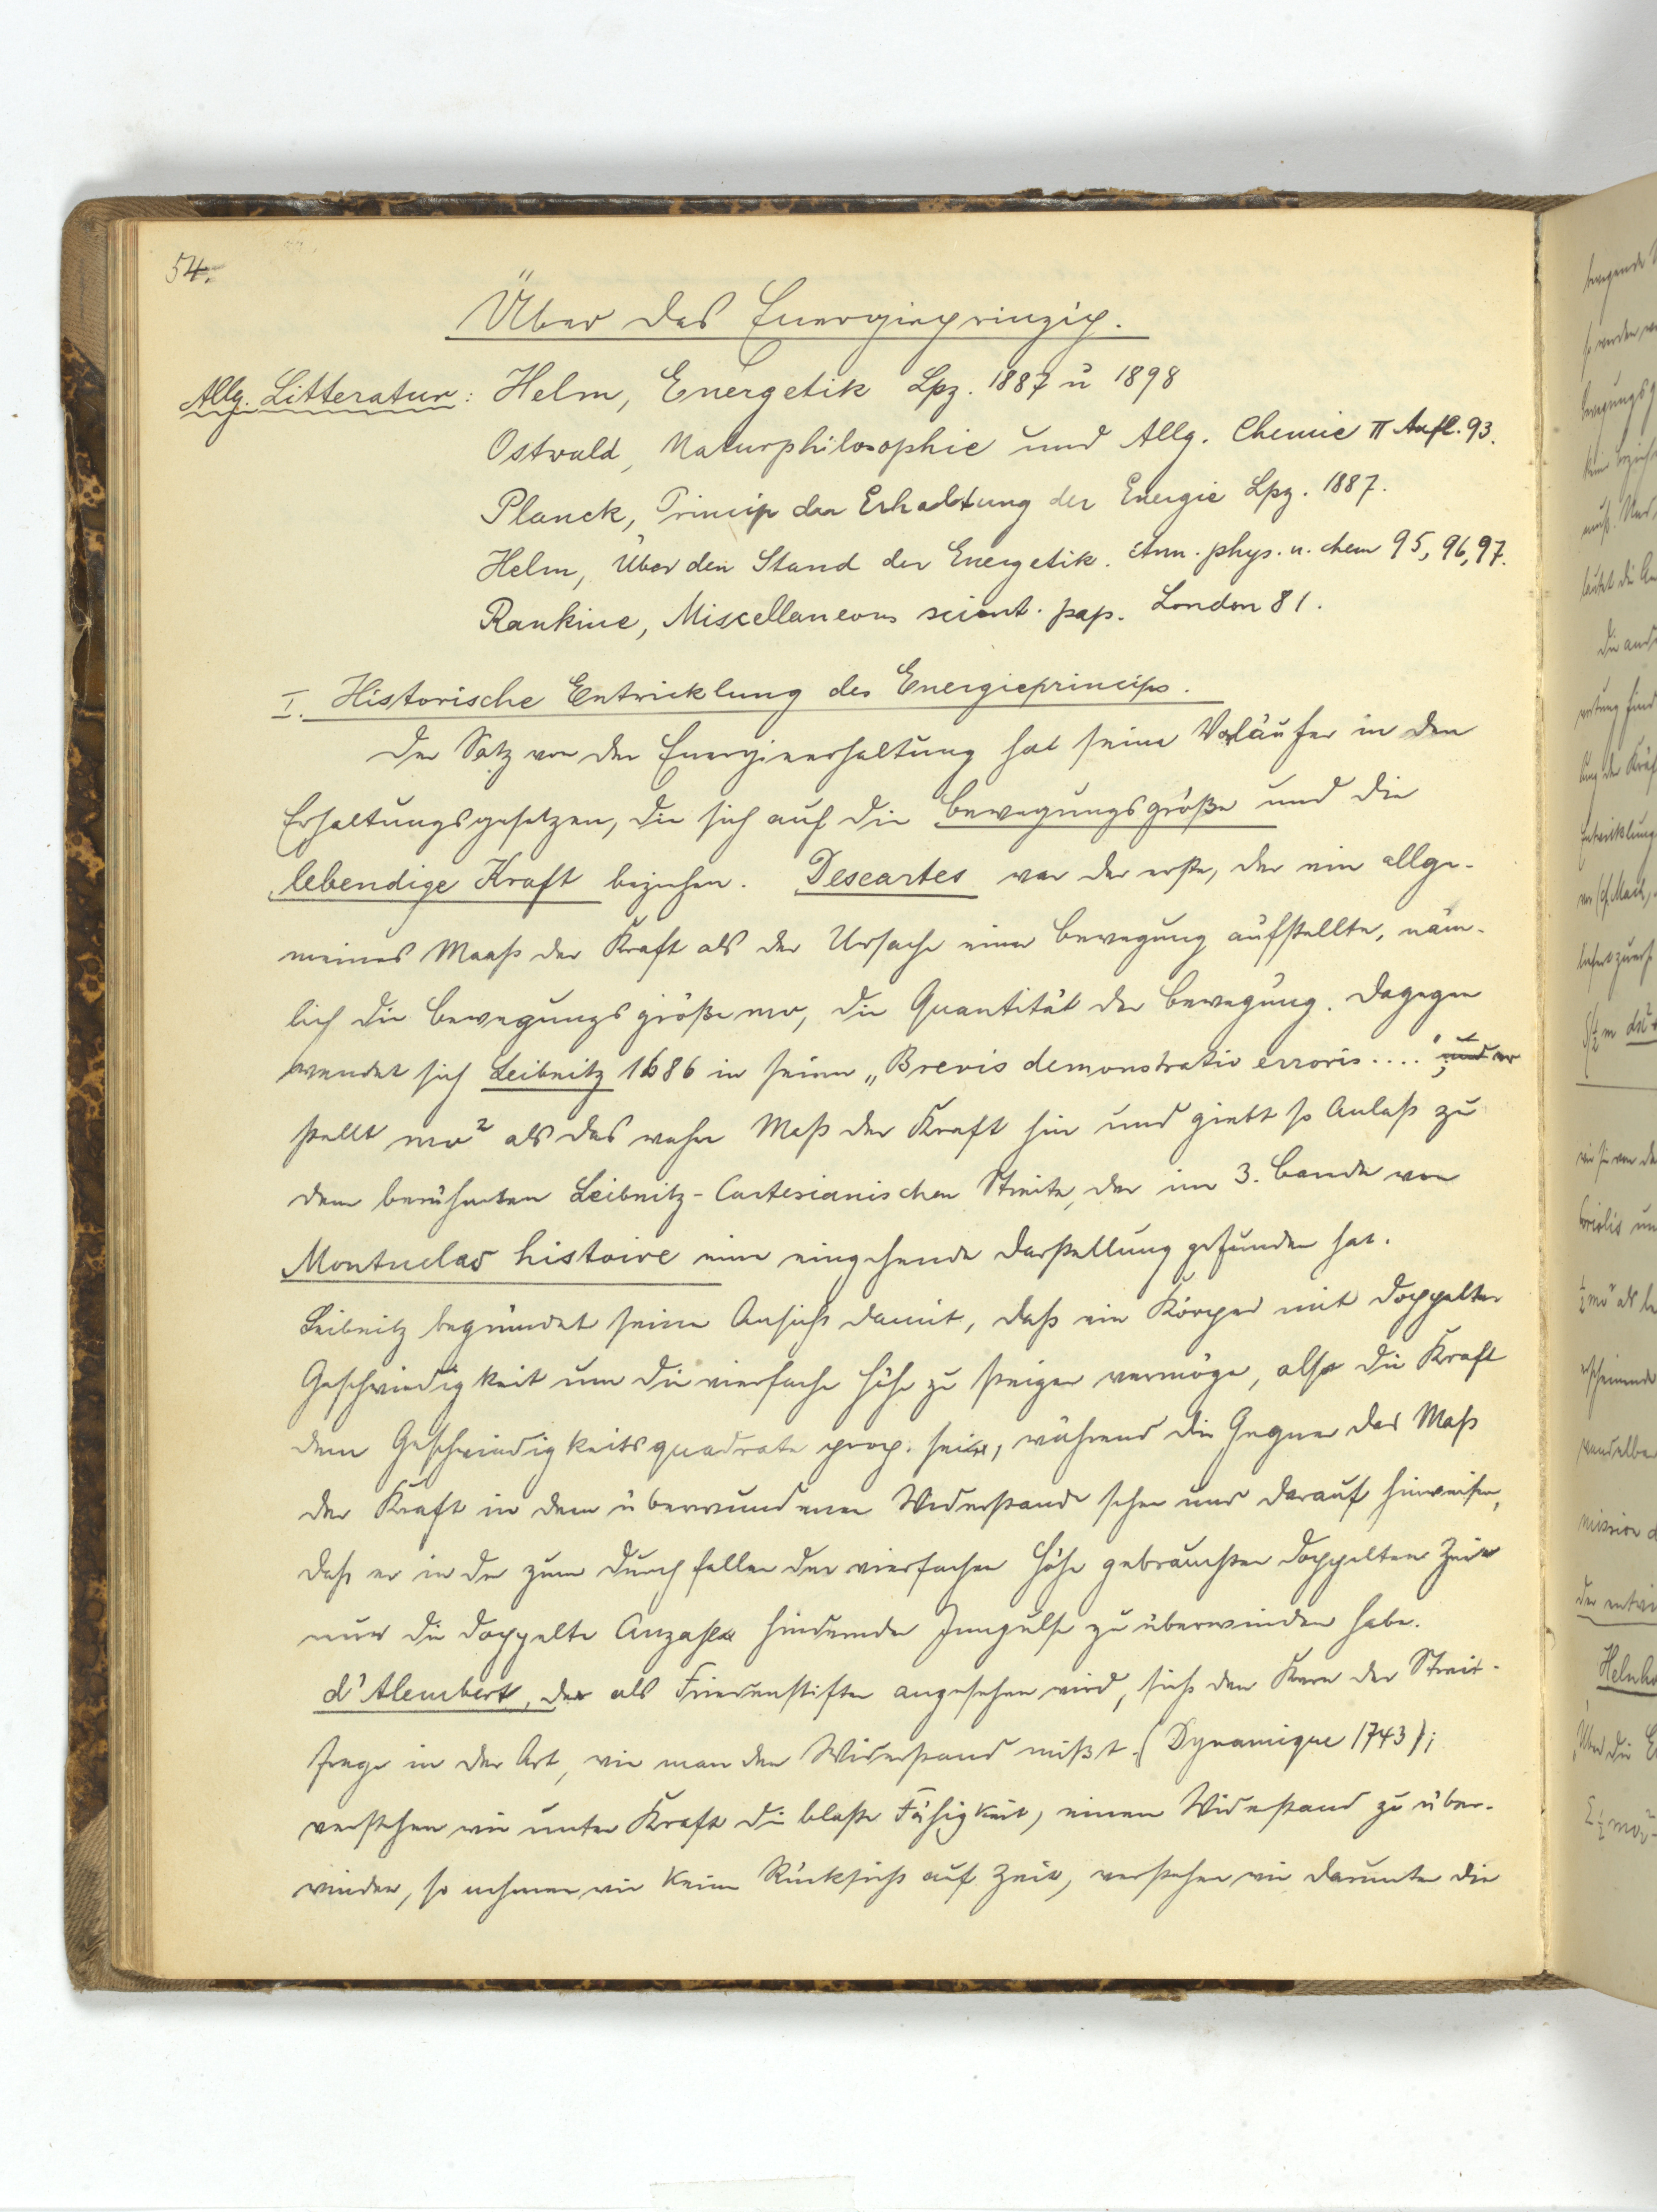 54.
Über das Energieprinzip.
Allg. Litteratur: Helm, Energetik Lpz. 1887 u 1898
Ostwald, Naturphilosophie und Allg. Chemie II Aufl. 93.
Planck, Princip der Erhaltung der Energie Lpz. 1887.
Helm, Über den Stand der Energetik. Ann. phys. u. chem 95, 96, 97.
Rankine, Miscellaneous scient. pap. London 81.
I. Historische Entwicklung des Energieprincips.
Der Satz von der Energieerhaltung hat seine Vorläufer in den
Erhaltungsgesetzen, die sich auf die Bewegungsgröße und die
lebendige Kraft beziehen. Descartes war der erste, der ein allge-
meines Maaß der Kraft als der Ursache einer Bewegung aufstellte, näm-
lich die Bewegungsgröße mv, die Quantität der Bewegung. Dagegen
wendet sich Leibnitz 1686 in seiner „Brevis demonstratio erroris...." ; und er
stellt mv² als das wahre Maß der Kraft hin und giebt so Anlaß zu
dem berühmten Leibnitz-Cartesianischen Streite, der im 3. Bande von
Montuclas histoire eine eingehende Darstellung gefunden hat.
Leibnitz begründet seine Ansicht damit, daß ein Körper mit doppelter
Geschwindigkeit um die vierfache Höhe zu steigen vermöge, also die Kraft
dem Geschwindigkeitsquadrate prop. sei, während die Gegner das Maß
der Kraft in dem überwundenen Widerstande sehen und darauf hinweisen,
daß er in der zum Durchfallen der vierfachen Höhe gebrauchten doppelten Zeit
nur die doppelte Anzahl hindernder Impulse zu überwinden habe.
d'Alembert, der als Friedenstifter angesehen wird, sieht den Kern der Streit-
frage in der Art, wie man den Widerstand mißt. (Dynamique 1743);
verstehen wir unter Kraft die bloße Fähigkeit, einen Widerstand zu über-
winden, so nehmen wir keine Rücksicht auf Zeit, verstehen wir darunter die